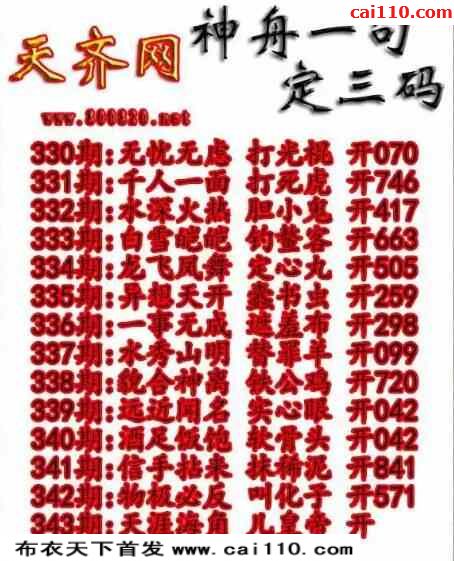 cai110.com
天齐网 神舟一句
定三码
www.800820.net
330期:无忧无虑 打光棍 开070
331期:千人一面 打死虎 开746
332期:水深火热 胆小鬼 开417
333期:白雪皑皑 钓鳌客 开663
334期:龙飞凤舞 定心丸 开505
335期:异想天开 蠹书虫 开259
336期:一事无成 遮羞布 开298
337期:水秀山明 替罪羊 开099
338期:貌合神离 铁公鸡 开720
339期:远近闻名 实心眼 开042
340期:酒足饭饱 软骨头 开042
341期:信手拈来 抹稀泥 开841
342期:物极必反 叫化子 开571
343期:天涯海角 儿皇帝 开
布衣天下首发 www.cai110.com